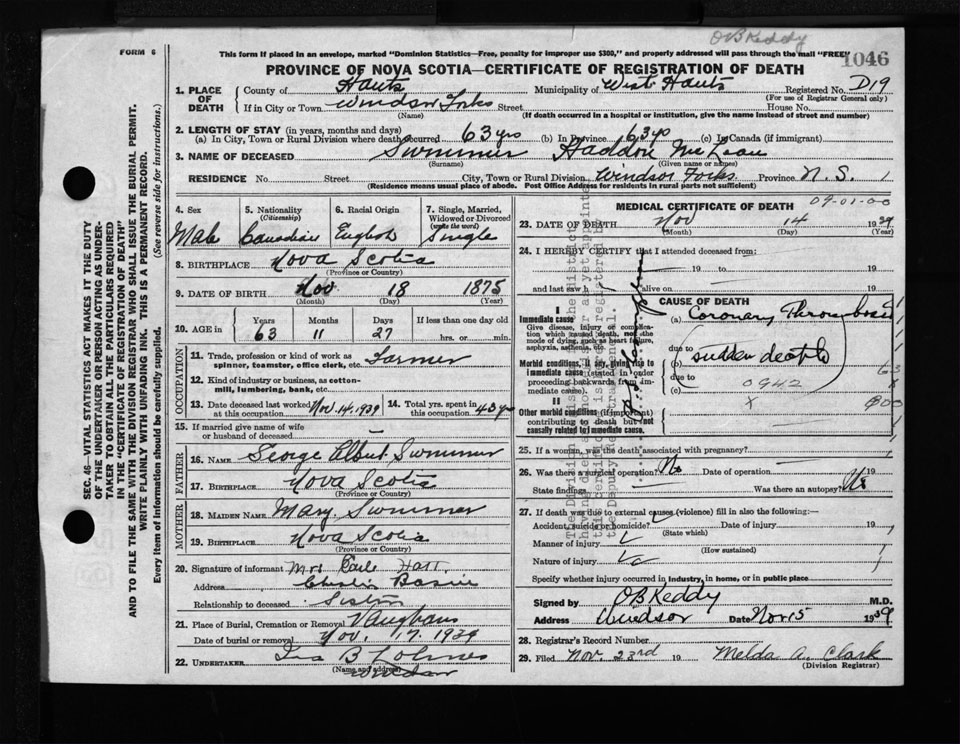 OB Reddy
FORM 6
This form if placed in an envelope, marked "Dominion Statistics—Free, penalty for improper use $300," and properly addressed will pass through the mail "FREE"
1046
PROVINCE OF NOVA SCOTIA—CERTIFICATE OF REGISTRATION OF DEATH
SEC. 46—VITAL STATISTICS ACT MAKES IT THE DUTY
OF THE UNDERTAKER OR PERSON ACTING AS UNDER-
TAKER TO OBTAIN ALL THE PARTICULARS REQUIRED
IN THE "CERTIFICATE OF REGISTRATION OF DEATH"
AND TO FILE THE SAME WITH THE DIVISION REGISTRAR WHO SHALL ISSUE THE BURIAL PERMIT.
WRITE PLAINLY WITH UNFADING INK. THIS IS A PERMANENT RECORD.
Every item of Information should be carefully supplied. (See reverse side for instructions.)
1. PLACE OF DEATH
County of Hants Municipality of West Hants Registered No. D19
(For use of Registrar General only)
If in City or Town Windsor Forks Street House No.
(Name) (If death occurred in a hospital or institution, give the name instead of street and number)
2. LENGTH OF STAY (in years, months and days)
(a) In City, Town or Rural Division where death occurred 63 yrs (b) In Province 63 yrs (c) In Canada (if immigrant)
3. NAME OF DECEASED Swimmer Haddon McLean
(Surname) (Given name or names)
RESIDENCE No. Street City, Town or Rural Division Windsor Forks Province N. S.
(Residence means usual place of abode. Post Office Address for residents in rural parts not sufficient)
4. Sex 5. Nationality (Citizenship) 6. Racial Origin 7. Single, Married, Widowed or Divorced (write the word)
Male Canadian English Single
8. BIRTHPLACE Nova Scotia
(Province or Country)
9. DATE OF BIRTH Nov 18 1875
(Month) (Day) (Year)
10. AGE in Years Months Days If less than one day old
63 11 27 hrs. or min.
OCCUPATION
11. Trade, profession or kind of work as spinner, teamster, office clerk, etc. Farmer
12. Kind of industry or business, as cotton-mill, lumbering, bank, etc.
13. Date deceased last worked at this occupation Nov. 14. 1939 14. Total yrs. spent in this occupation 43 yrs
15. If married give name of wife or husband of deceased —
FATHER
16. NAME George Elbert Swimmer
17. BIRTHPLACE Nova Scotia
(Province or Country)
MOTHER
18. MAIDEN NAME Mary Swimmer
19. BIRTHPLACE Nova Scotia
(Province or Country)
20. Signature of informant Mrs Earle Hatt
Address Chester Basin
Relationship to deceased Sister
21. Place of Burial, Cremation or Removal Vaughans
Date of burial or removal Nov. 17. 1939
22. UNDERTAKER Ira B Lohnes
(Name and address) Windsor
MEDICAL CERTIFICATE OF DEATH
09-01-00
23. DATE OF DEATH Nov 14 1939
(Month) (Day) (Year)
24. I HEREBY CERTIFY that I attended deceased from:
19 to 19
and last saw h alive on 19
CAUSE OF DEATH
I
Immediate cause
Give disease, injury or complication which caused death, not the mode of dying, such as heart failure, asphyxia, asthenia, etc.
(a) Coronary Thrombosis
due to
Morbid conditions, if any, giving rise to immediate cause (stated in order proceeding backwards from immediate cause).
(b) sudden death
due to 0942
(c) X
Other morbid conditions (if important) contributing to death but not causally related to immediate cause.
25. If a woman, was the death associated with pregnancy? —
26. Was there a surgical operation? No Date of operation 19
State findings Was there an autopsy? No
27. If death was due to external causes (violence) fill in also the following:—
Accident, suicide or homicide? Date of injury 19
(State which)
Manner of injury
(How sustained)
Nature of injury
Specify whether injury occurred in industry, in home, or in public place
Signed by OB Reddy M.D.
Address Windsor Date Nov 15 1939
28. Registrar's Record Number
29. Filed Nov. 23rd 19 Melda A. Clark
(Division Registrar)